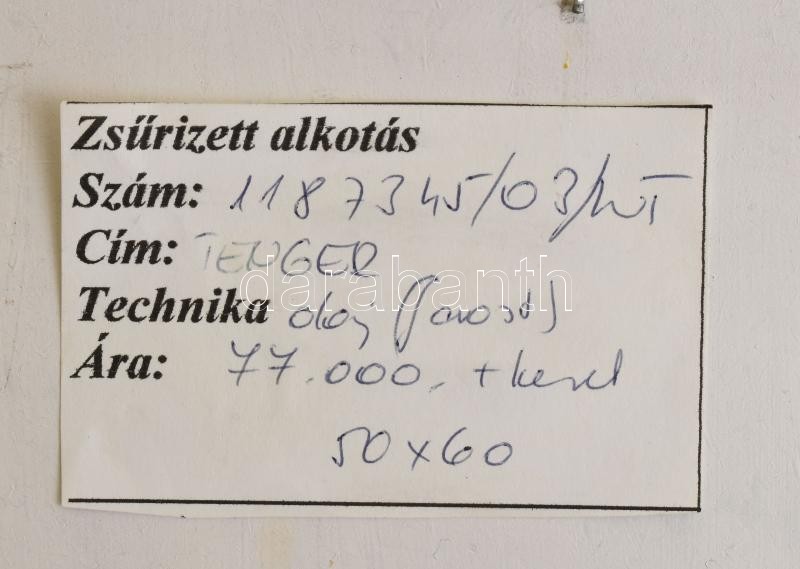 Zsűrizett alkotás
Szám: 1187345/03/
Cím: TENGER
darabanth
Technika olaj (farost)
Ára: 77.000,- + keret
50 x 60